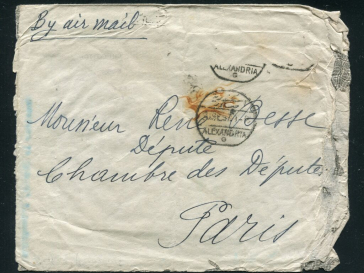 By air mail
ALEXANDRIA
G
ALEXANDRIA
G
Monsieur René Besse
Député
Chambre des Députés
Paris